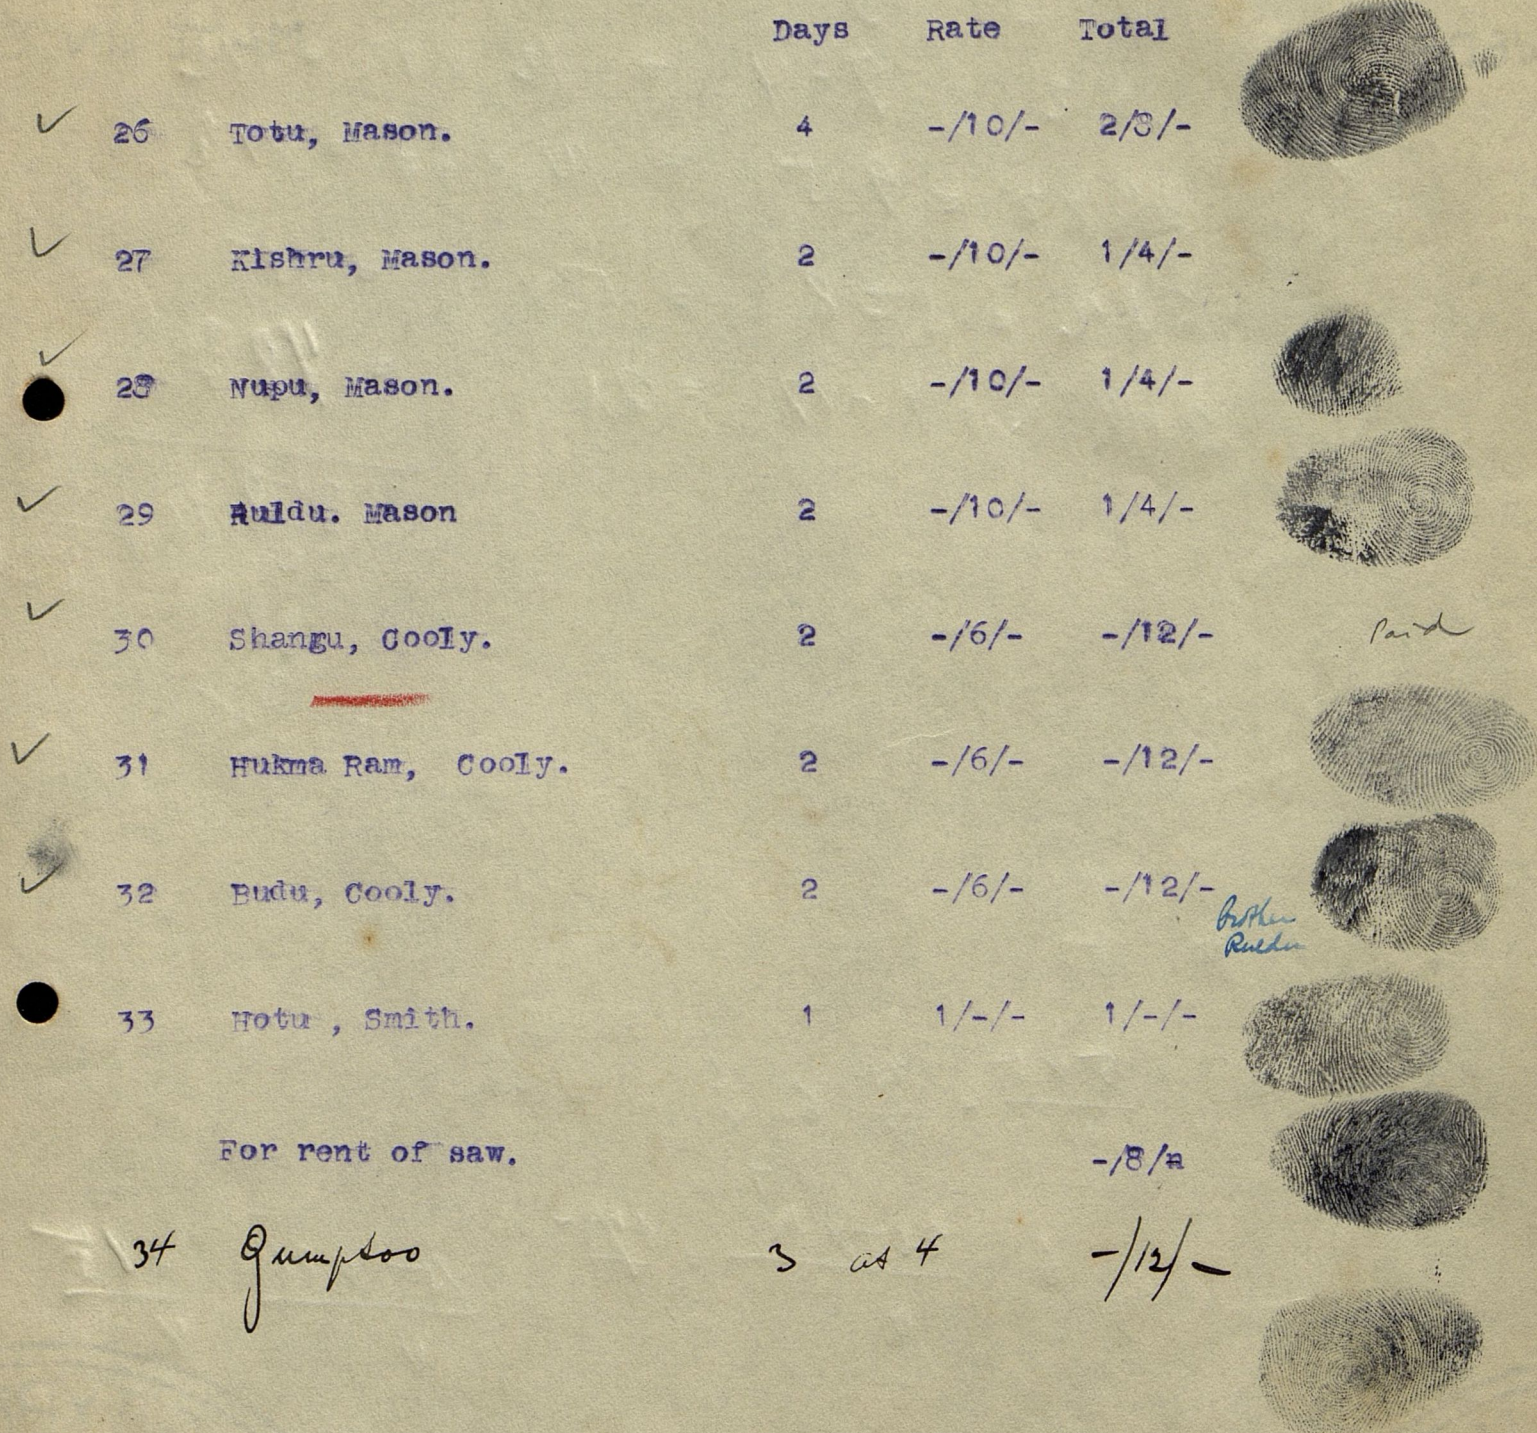 Days Rate Total
26 Totu, Mason. 4 -/10/- 2/8/-
27 Kishru, Mason. 2 -/10/- 1/4/-
28 Nupu, Mason. 2 -/10/- 1/4/-
29 Ruldu. Mason 2 -/10/- 1/4/-
30 Shangu, Cooly. 2 -/6/- -/12/- Paid
31 Hukma Ram, Cooly. 2 -/6/- -/12/-
32 Budu, Cooly. 2 -/6/- -/12/-
brother
Ruldu
33 Hotu , Smith. 1 1/-/- 1/-/-
For rent of saw. -/8/n
34 Gumptoo 3 at 4 -/12/-